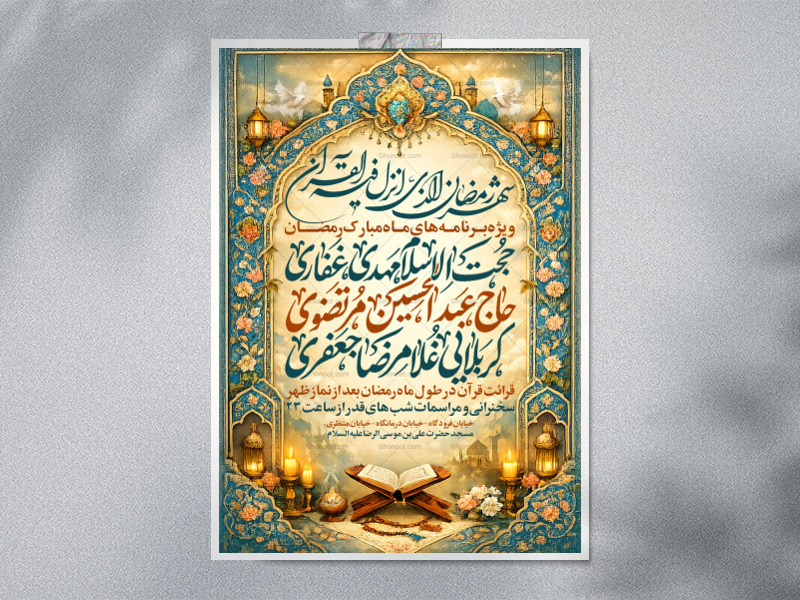 شهر رمضان الذی انزل فیه القرآن
ویژه‌برنامه‌های ماه مبارک رمضان
حجت الاسلام مهدی غفاری
حاج عبدالحسین مرتضوی
کربلایی غلامرضا جعفری
قرائت قرآن در طول ماه رمضان بعد از نماز ظهر
سخنرانی و مراسمات شب های قدر از ساعت ۲۳
خیابان فرودگاه - خیابان درمانگاه - خیابان منتظری.
مسجد حضرت علی بن موسی الرضا علیه السلام